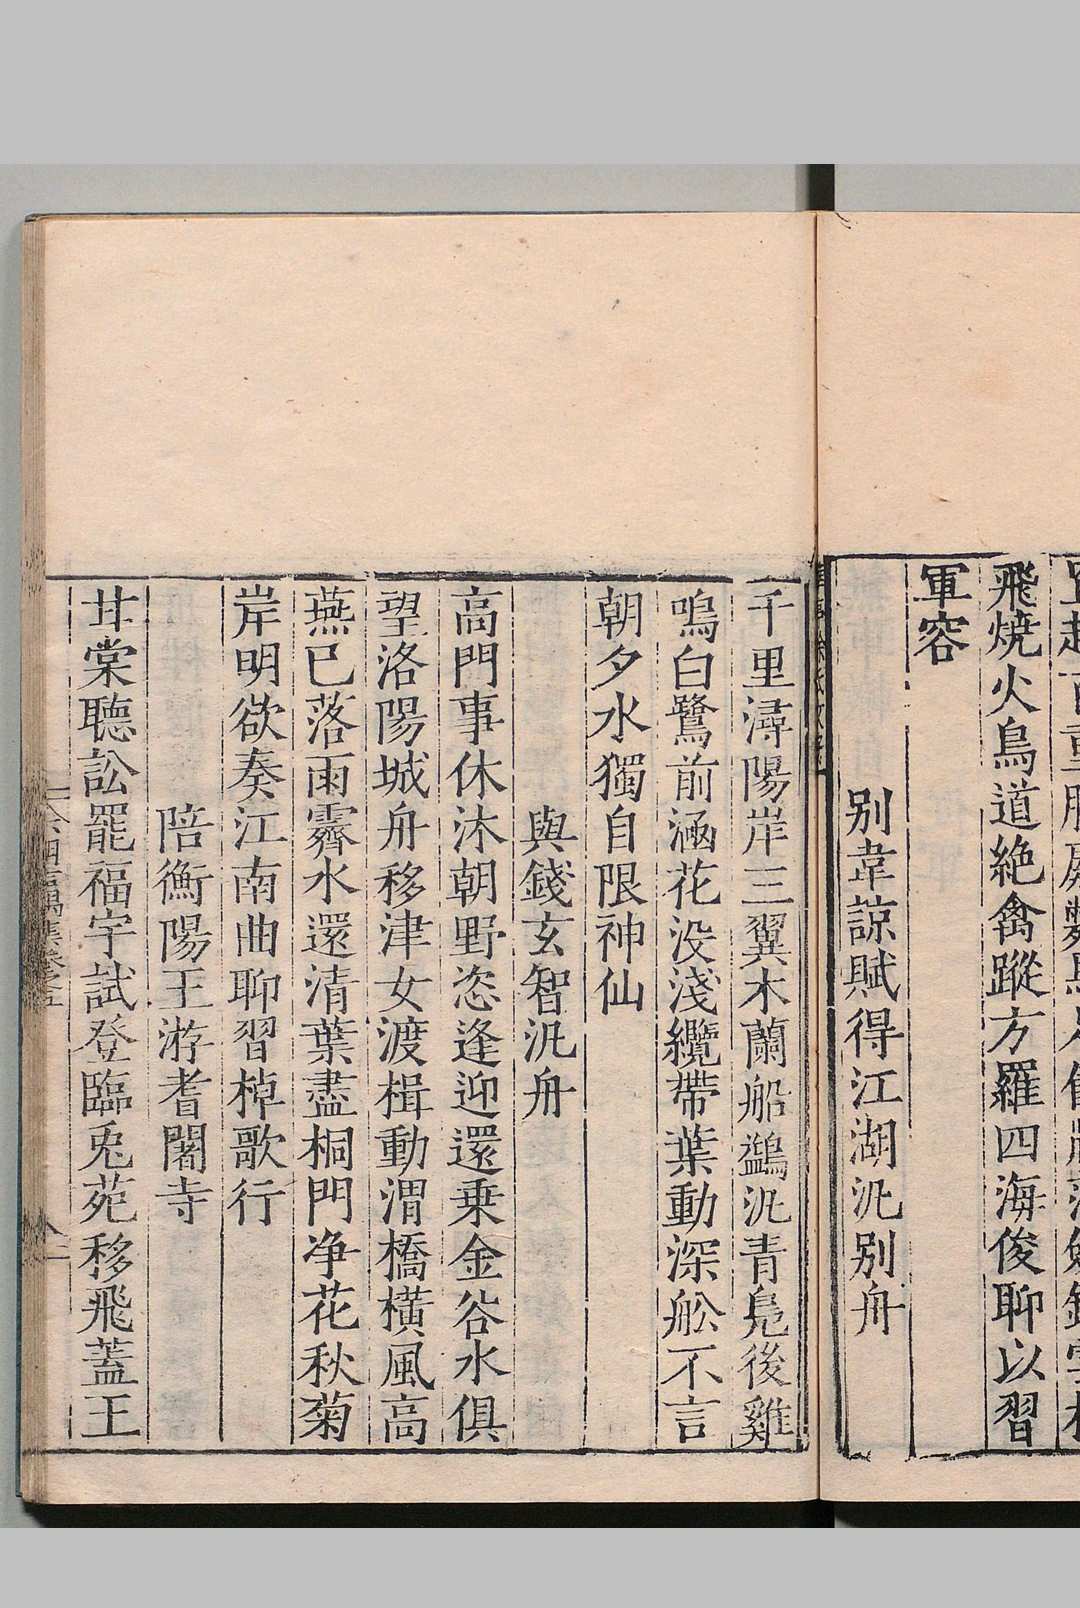 飛燒火鳥道絶禽蹤方羅四海俊聊以習
軍容
別韋諒賦得江湖汎別舟
千里潯陽岸三翼木蘭船鷁汎青鳧後雞
鳴白鷺前涵花没淺纜帶葉動深舩不言
朝夕水獨自限神仙
與錢玄智汎舟
高門事休沐朝野恣逢迎還乗金谷水俱
望洛陽城舟移津女渡楫動渭橋横風高
燕已落雨霽水還清葉盡桐門净花秋菊
岸明欲奏江南曲聊習棹歌行
陪衡陽王游耆闍寺
甘棠聽訟罷福宇試登臨兎苑移飛蓋王